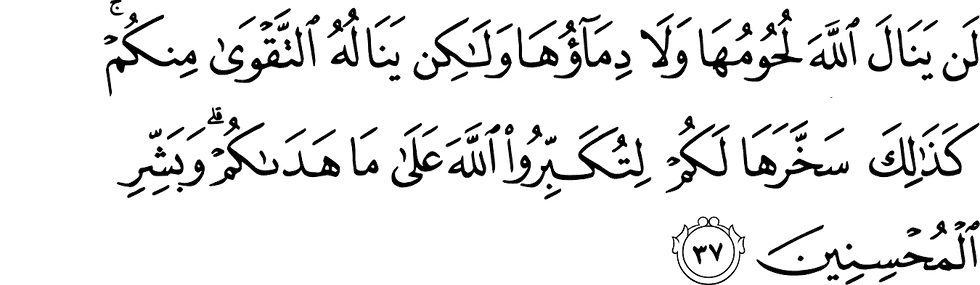 لَن يَنَالَ ٱللَّهَ لُحُومُهَا وَلَا دِمَآؤُهَا وَلَٰكِن يَنَالُهُ ٱلتَّقْوَىٰ مِنكُمْ ۚ
كَذَٰلِكَ سَخَّرَهَا لَكُمْ لِتُكَبِّرُوا۟ ٱللَّهَ عَلَىٰ مَا هَدَىٰكُمْ ۗ وَبَشِّرِ
ٱلْمُحْسِنِينَ ٣٧